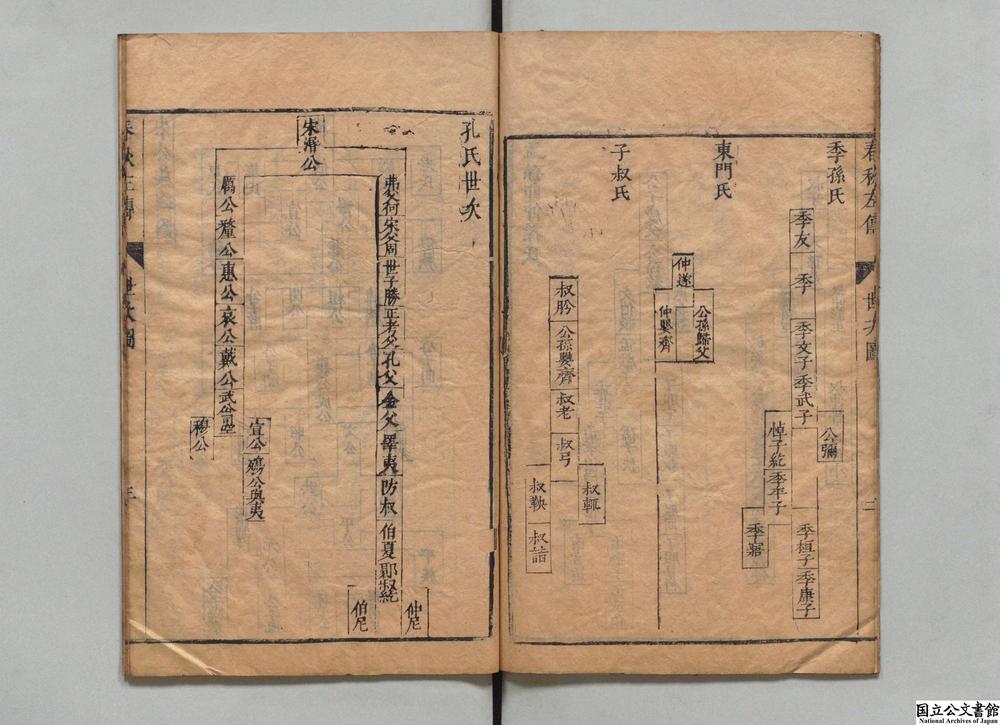 春秋左傳
世次圖
三
季孫氏
季友
季
季文子
季武子
公彌
悼子紇
季平子
季桓子
季康子
季寤
東門氏
仲遂
公孫歸父
仲嬰齊
子叔氏
叔肸
公孫嬰齊
叔老
叔弓
叔輒
叔鞅
叔詣
孔氏世次
宋湣公
弗父何
宋父周
世子勝
正考父
孔父
金父
睪夷
防叔
伯夏
郰叔紇
仲尼
伯尼
厲公
釐公
惠公
哀公
戴公
武公
司空
宣公
殤公與夷
穆公
世次圖
国立公文書館
National Archives of Japan